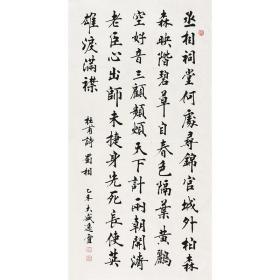 丞相祠堂何處尋錦官城外柏森
森映階碧草自春色隔葉黃鸝
空好音三顧頻煩天下計兩朝開濟
老臣心出師未捷身先死長使英
雄淚滿襟
杜甫詩蜀相
乙未大盛